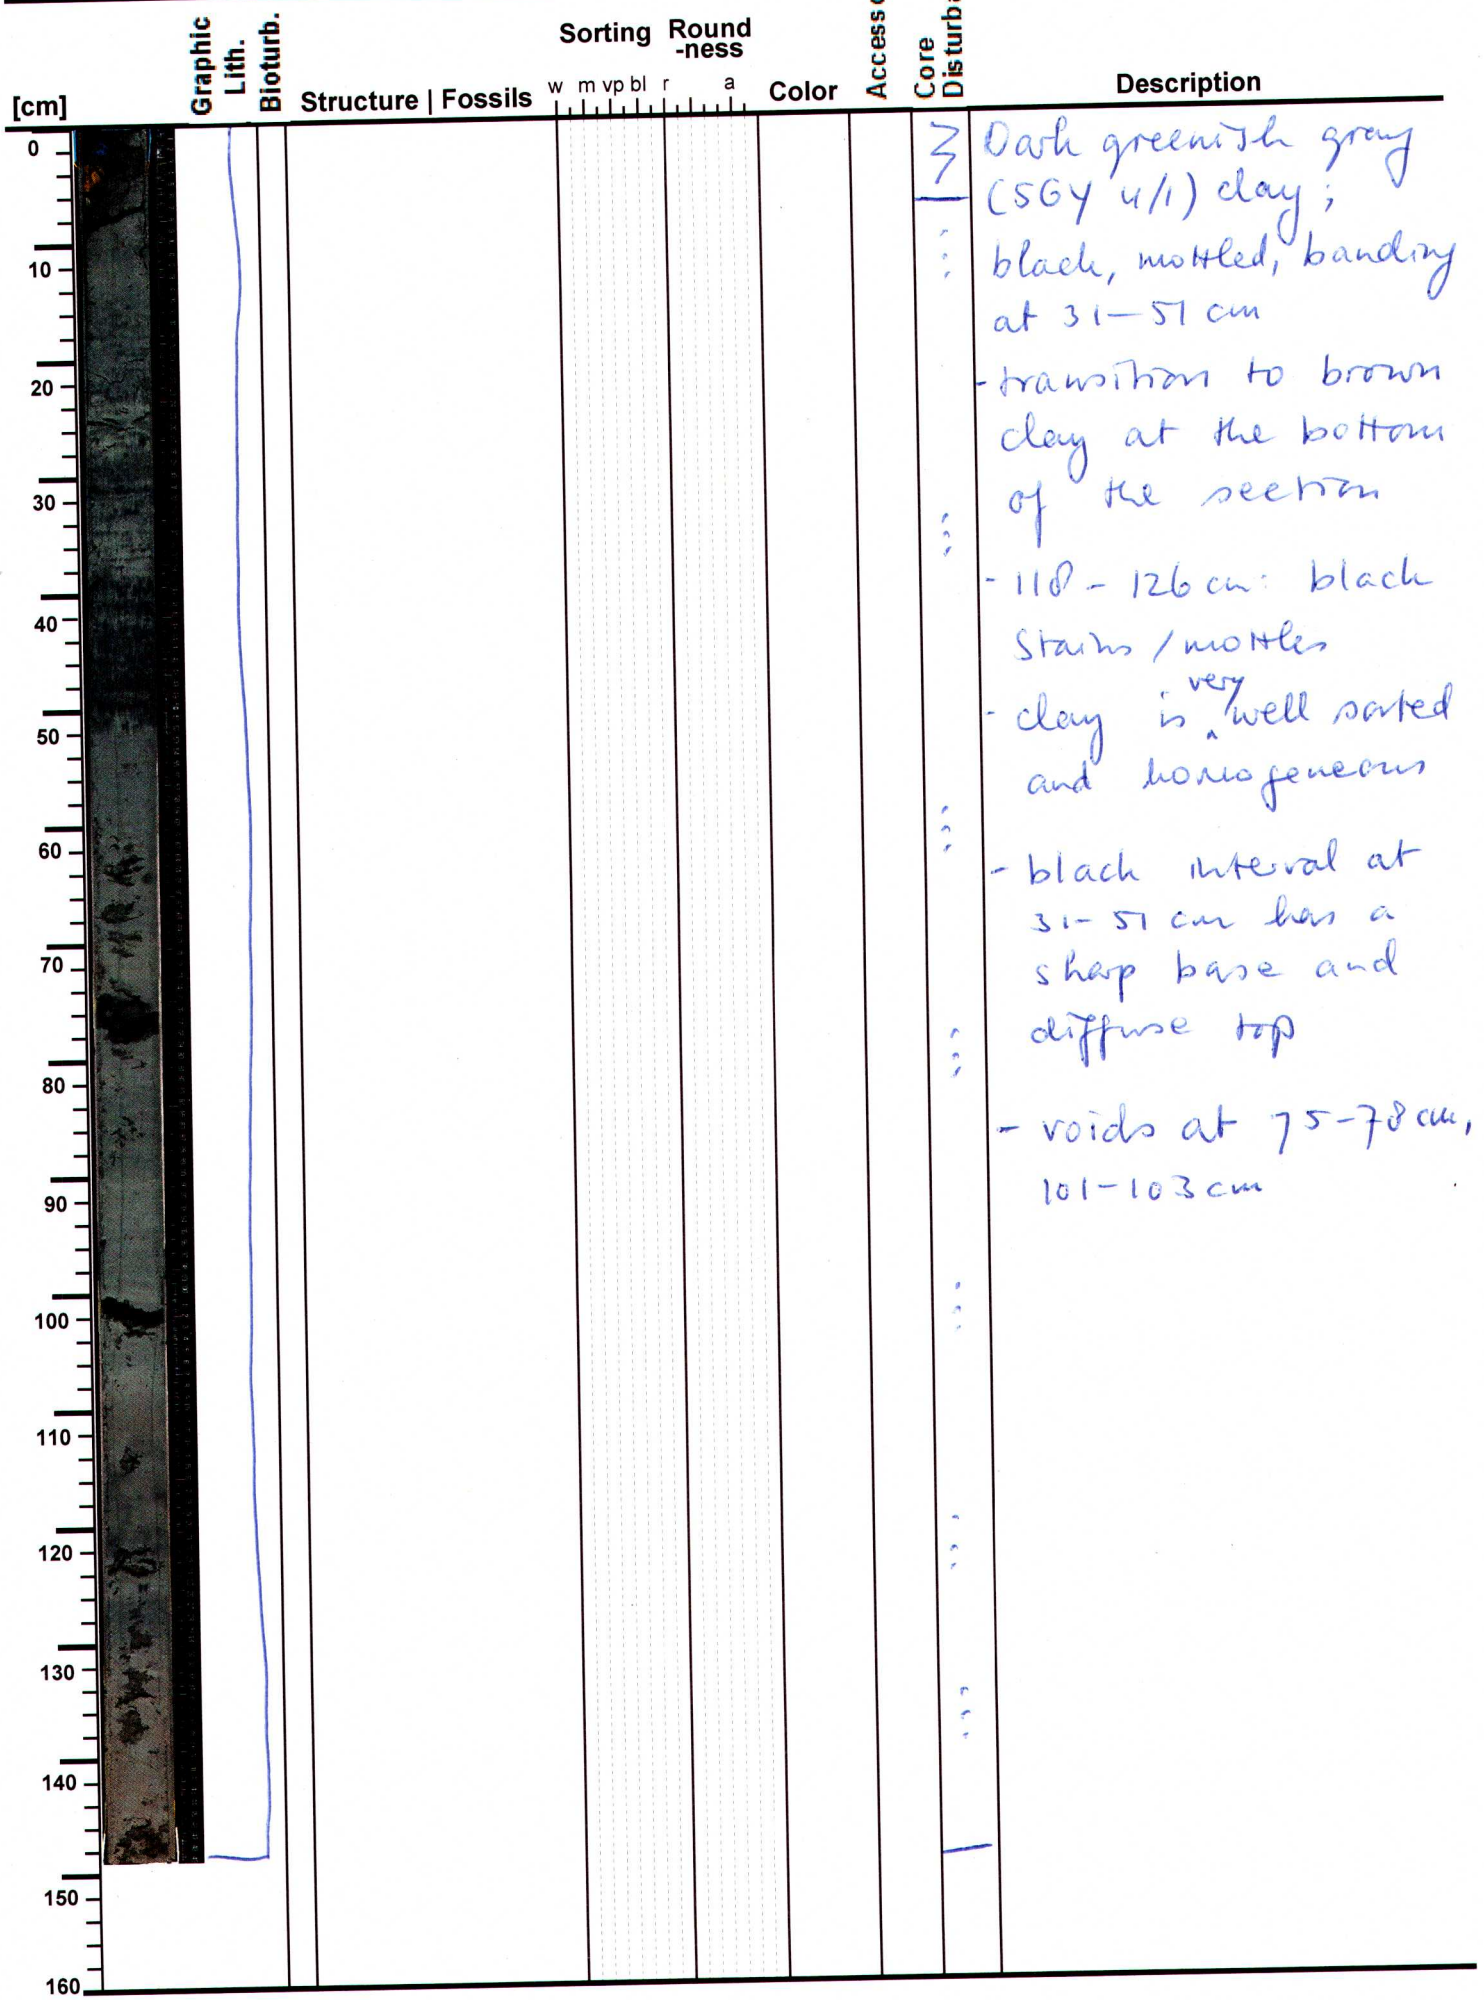 [cm]
Graphic
Lith.
Bioturb.
Structure | Fossils
Sorting
Round
-ness
w m vp bl r a
Color
Core
Description
0
10
20
30
40
50
60
70
80
90
100
110
120
130
140
150
160
Dark greenish gray
(5GY 4/1) clay;
black, mottled, banding
at 31-51 cm
- transition to brown
clay at the bottom
of the section
- 118 - 126 cm: black
stains / mottles
- clay is very well sorted
and homogeneous
- black interval at
31-51 cm has a
sharp base and
diffuse top
- voids at 75-78 cm,
101-103 cm